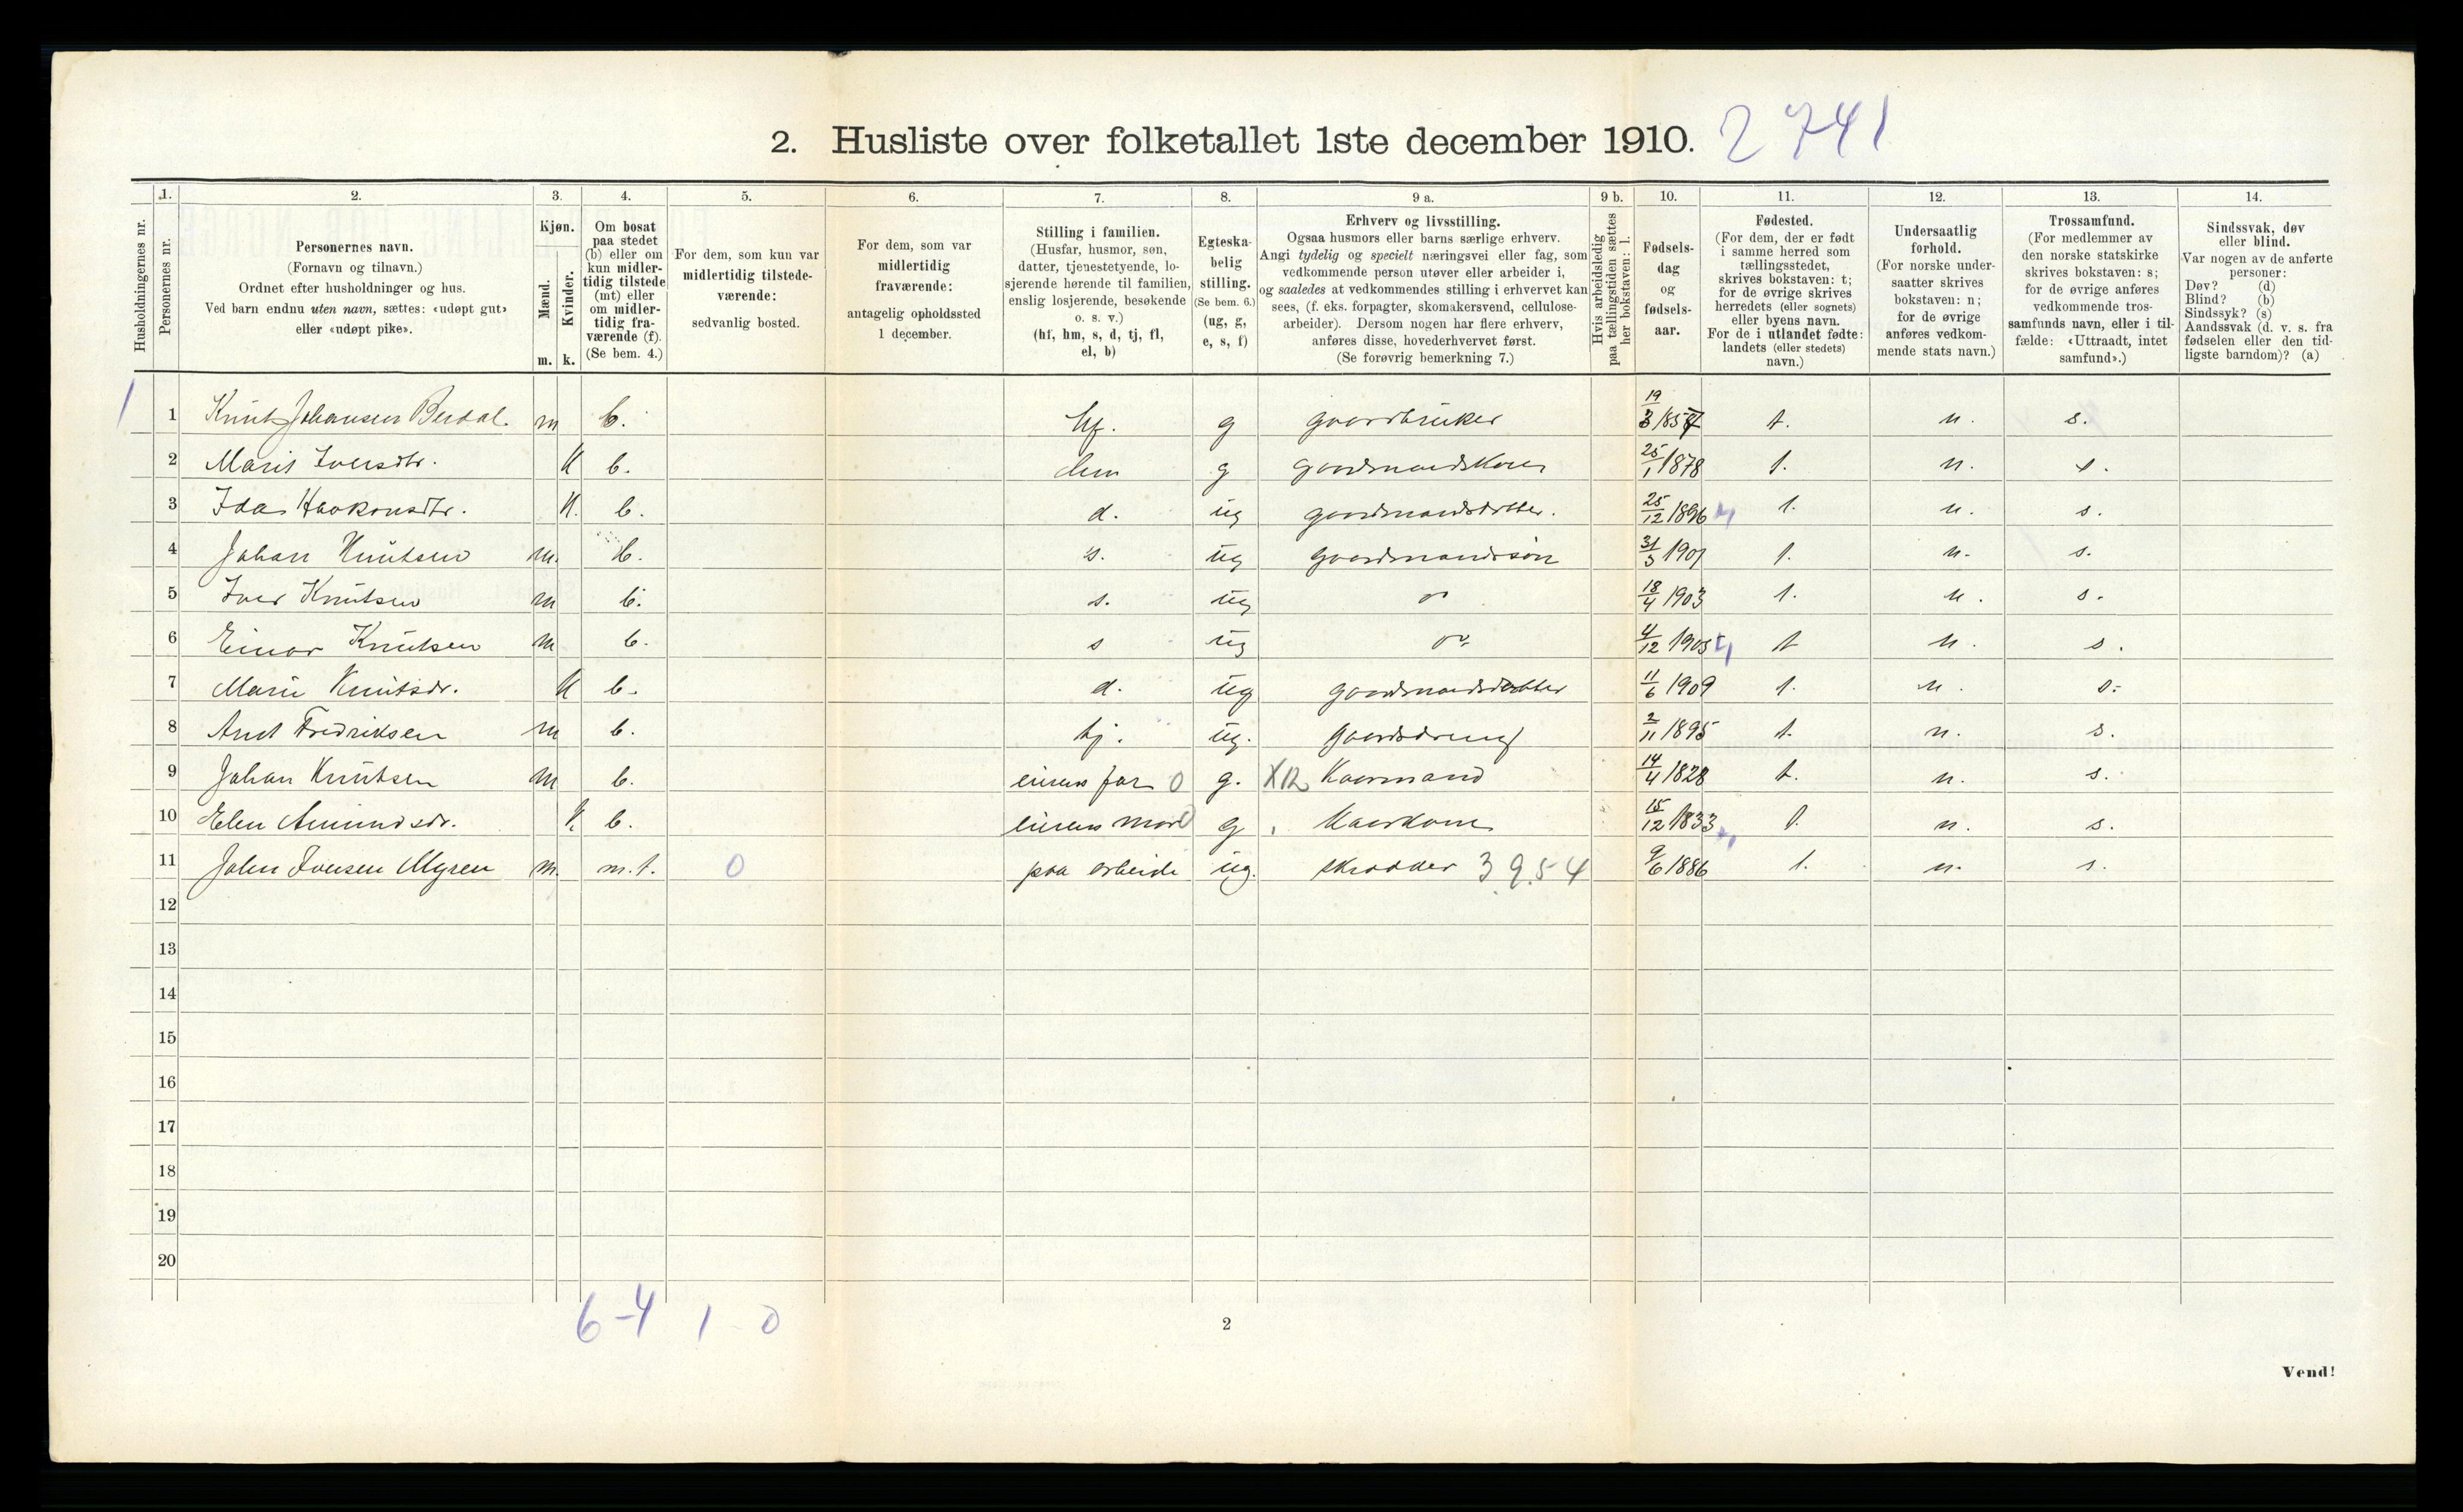 2. Husliste over folketallet 1ste december 1910. 2741
1. 2. 3. 4. 5. 6. 7. 8. 9 a. 9 b. 10. 11. 12. 13. 14.
Husholdningernes nr.
Personernes nr.
Personernes navn.
(Fornavn og tilnavn.)
Ordnet efter husholdninger og hus.
Ved barn endnu uten navn, sættes: «udøpt gut»
eller «udøpt pike».
Kjøn.
Mænd.
Kvinder.
m. k.
Om bosat
paa stedet
(b) eller om
kun midler-
tidig tilstede
(mt) eller
om midler-
tidig fra-
værende (f).
(Se bem. 4.)
For dem, som kun var
midlertidig tilstede-
værende:
sedvanlig bosted.
For dem, som var
midlertidig
fraværende:
antagelig opholdssted
1 december.
Stilling i familien.
(Husfar, husmor, søn,
datter, tjenestetyende, lo-
sjerende hørende til familien,
enslig losjerende, besøkende
o. s. v.)
(hf, hm, s, d, tj, fl,
el, b)
Egteska-
belig
stilling.
(Se bem. 6.)
(ug, g,
e, s, f)
Erhverv og livsstilling.
Ogsaa husmors eller barns særlige erhverv.
Angi tydelig og specielt næringsvei eller fag, som
vedkommende person utøver eller arbeider i,
og saaledes at vedkommendes stilling i erhvervet kan
sees, (f. eks. forpagter, skomakersvend, cellulose-
arbeider). Dersom nogen har flere erhverv,
anføres disse, hovederhvervet først.
(Se forøvrig bemerkning 7.)
Hvis arbeidsledig
paa tællingstiden sættes
her bokstaven: l.
Fødsels-
dag
og
fødsels-
aar.
Fødested.
(For dem, der er født
i samme herred som
tællingsstedet,
skrives bokstaven: t;
for de øvrige skrives
herredets (eller sognets)
eller byens navn.
For de i utlandet fødte:
landets (eller stedets)
navn.)
Undersaatlig
forhold.
(For norske under-
saatter skrives
bokstaven: n;
for de øvrige
anføres vedkom-
mende stats navn.)
Trossamfund.
(For medlemmer av
den norske statskirke
skrives bokstaven: s;
for de øvrige anføres
vedkommende tros-
samfunds navn, eller i til-
fælde: «Uttraadt, intet
samfund».)
Sindssvak, døv
eller blind.
Var nogen av de anførte
personer:
Døv? (d)
Blind? (b)
Sindssyk? (s)
Aandssvak (d. v. s. fra
fødselen eller den tid-
ligste barndom)? (a)
1 1 Knut Johansen Berdal m b. hf. g gaardbruker 19/3 1857 t. n. s.
2 Marit Iversdtr. K b. hm g gaardmandskone 25/1 1878 t. n. s.
3 Ida Haakonsdtr. K. b. d. ug gaardmandsdatter. 25/12 1896 t. n. s.
4 Johan Knutsen m. b. s. ug gaardmandssøn 31/3 1901 t. n. s.
5 Iver Knutsen m b. s. ug do 18/4 1903 t. n. s.
6 Einar Knutsen m b. s ug do 4/12 1905 t n. s.
7 Marie Knutsdr. K b. d. ug gaardmandsdatter 11/6 1909 t. n. s.
8 Arnt Fredriksen m b. tj. ug. gaardsdreng 2/11 1895 t. n. s.
9 Johan Knutsen m b. eierens far 0 g. X12 Kaarmand 14/4 1828 t. n. s.
10 Elen Amundsdr. K b. eierens mor 0 g Kaarkone 15/12 1833 t. n. s.
11 John Iversen Myren m. m.t. 0 paa arbeide ug. skrædder 3954 9/6 1886 t. n. s.
12
13
14
15
16
17
18
19
20
6-4 1 0
2
Vend!